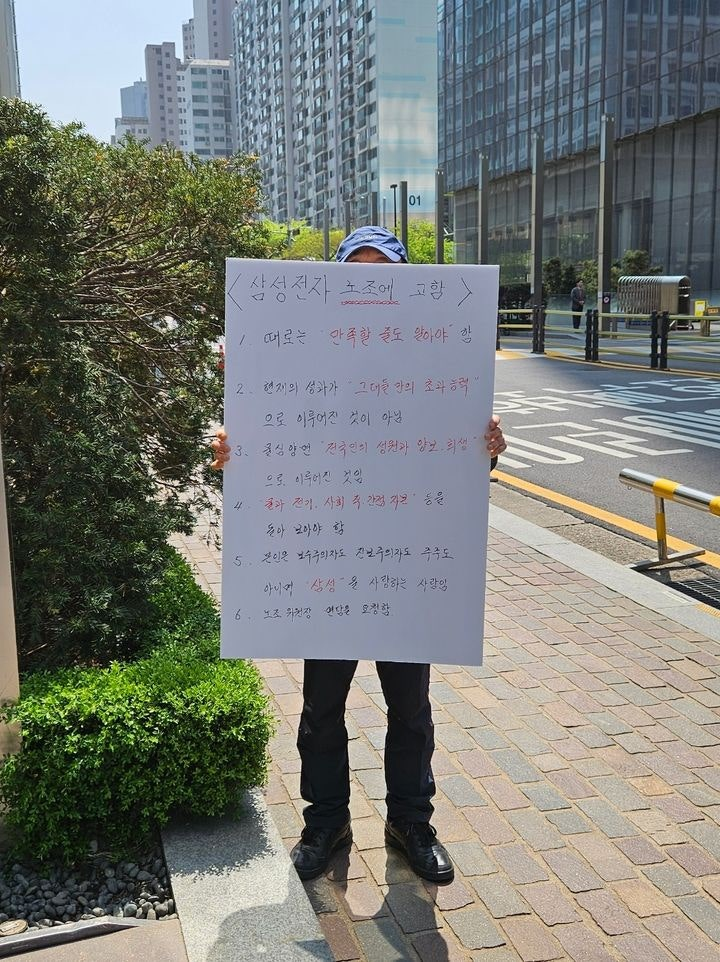 < 삼성전자 노조에 고함 >
1. 때로는 "만족할 줄도 알아야" 함
2. 현재의 성과가 "그대들만의 초과능력"
으로 이루어진 것이 아님
3. 물심양면 "전국민의 성원과 양보.희생"
으로 이루어진 것임
4. "물과 전기, 사회 즉.간접자본" 등을
돌아 보아야 함
5. 본인은 보수주의자도 진보주의자도 주주도
아니며 "삼성"을 사랑하는 사람임
6. 노조 위원장 면담을 요청함.
01